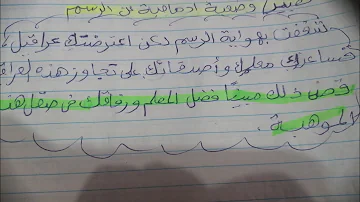 وضعية ادماجية عن الرسم
شغفت بهواية الرسم لكن اعترضتك عراقيل
فساعدك معلمك وأصدقائك على تجاوز هذه
قص ذلك مبينا فضل المعلم ورفاقك في صقل هذه
الموهبة.